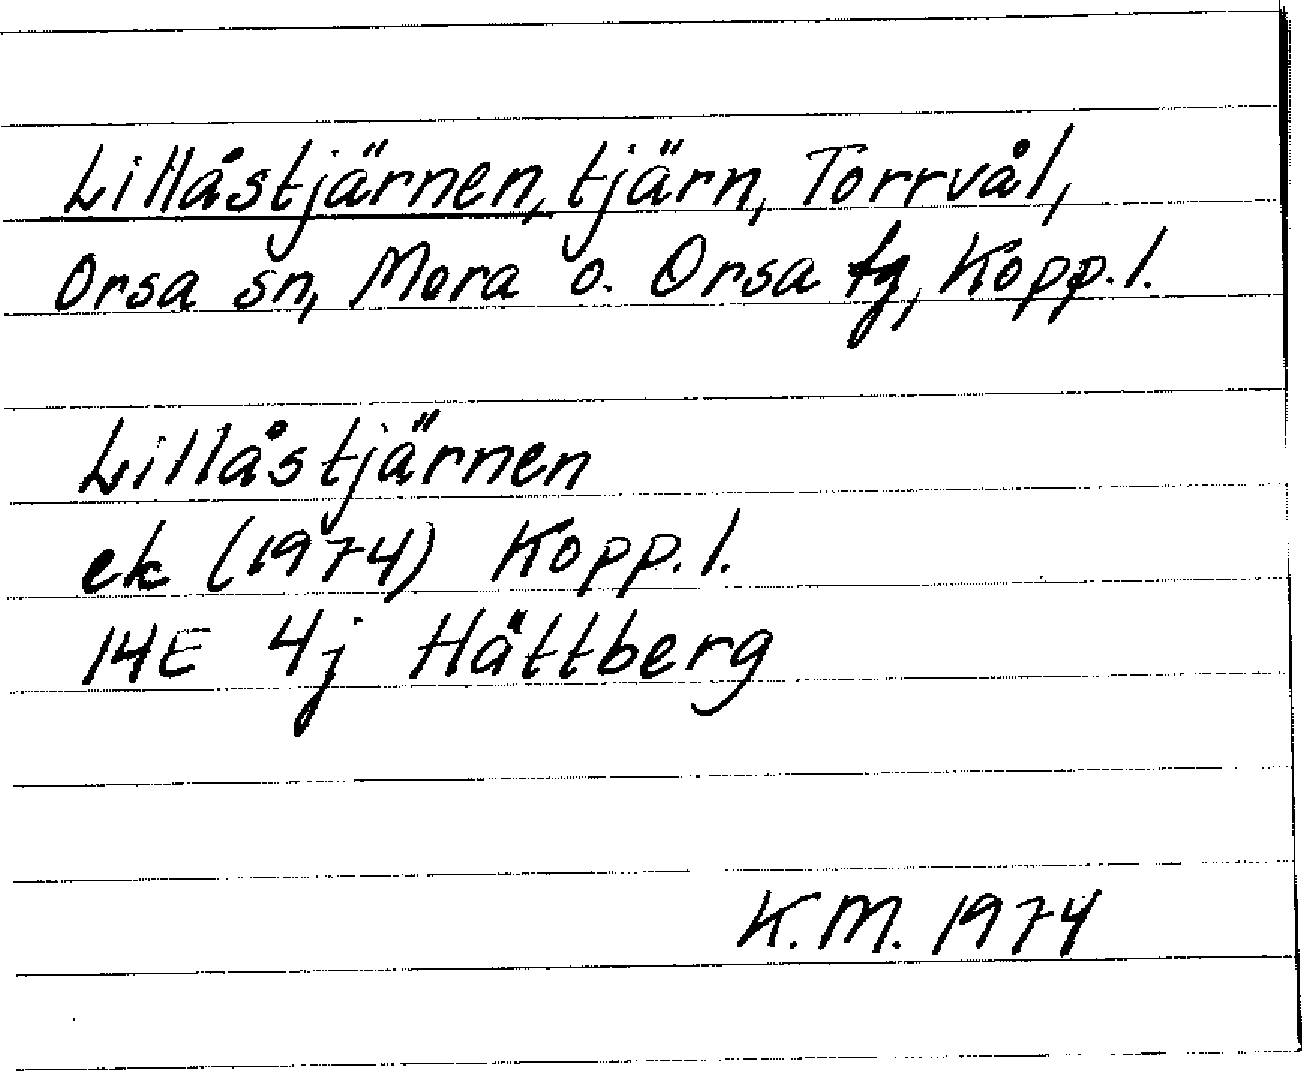 Lillåstjärnen, tjärn, Torrvål,
Orsa sn, Mora o. Orsa tg, Kopp.l.
Lillåstjärnen
ek (1974) Kopp.l.
14E 4j Håttberg
K.M. 1974